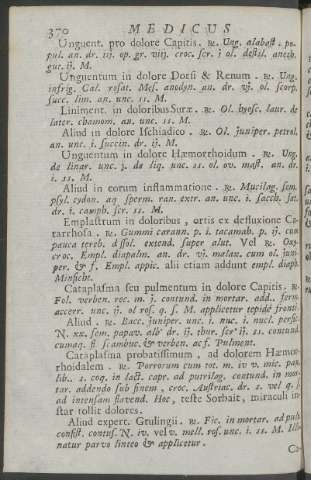 370 MEDICUS
Unguent. pro dolore Capitis. ℞. Ung. alabast. po-
pul. an. dr. iij. op. gr. viij. croc. scr. j ol. destil. aneth.
gut. ij. M.
Unguentum in dolore Dorsi & Renum. ℞. Ung.
infrig. Gal. rosat. Mes. anodyn. an. dr. vj. ol. scorp.
succ. lim. an. unc. ss. M.
Liniment. in doloribus Suræ. ℞. Ol. hyosc. laur. de
later. chamom. an. unc. ss. M.
Aliud in dolore Ischiadico. ℞. Ol. juniper. petrol.
an. unc. j. succin. dr. ij. M.
Unguentum in dolore Hæmorrhoidum. ℞. Ung.
de linar. unc. j. de liq. unc. ss. ol. ov. mast. an. dr.
j. ss. M.
Aliud in eorum inflammatione. ℞. Mucilag. sem.
psyl. cydon. aq sperm. ran. extr. an. unc. j. sacch. sat.
dr. j. camph. scr. ss. M.
Emplastrum in doloribus, ortis ex defluxione Ca-
tarrhosa. ℞. Gummi caraun. p. j. tacamah. p. ij. cum
pauca tereb. dissol. extend. super alut. Vel ℞. Oxy-
croc. Empl. diapalm. an. dr. vj. malax. cum ol. juni-
per. & f. Empl. appic. alii etiam addunt empl. diaph.
Minsicht.
Cataplasma seu pulmentum in dolore Capitis. ℞.
Fol. verben. rec. m. j. contund. in mortar. add. farin.
acceer. unc. ij. ol ros. q. s. M. applicetur tepidè fronti.
Aliud. ℞. Bacc. juniper. unc. j. nuc. j. nucl. persic.
N. xx. sem. papav. alb. dr. ij. thur. scr. ij. ss. contund.
cum aq. fl sambuc. & verben. ac f. Pulment.
Cataplasma probatissimum, ad dolorem Hæmor-
rhoidalem. ℞. Porrorum cum tot. m. iv v. mic. pan.
lib. s. coq. in lact. capr. ad putrilag. contund. in mor-
tar. addendo sub finem, croc. Austriac. dr. s. vel q. s.
ad intensam flaved. Hoc, teste Sorbait, miraculi in-
star tollit dolores.
Aliud expert. Grulingii. ℞. Fic. in mortar. ad pulp.
consist. contus. N. iv. vel v. mell. ros. unc. j. ss. M. Illi-
natur parvo linteo & applicetur.
Ca-